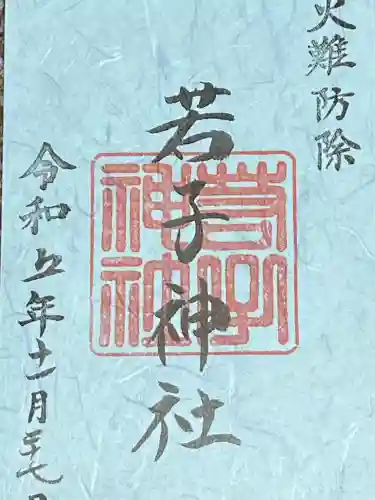 火難防除
若子神社
若子神社
令和五年十一月二十七日